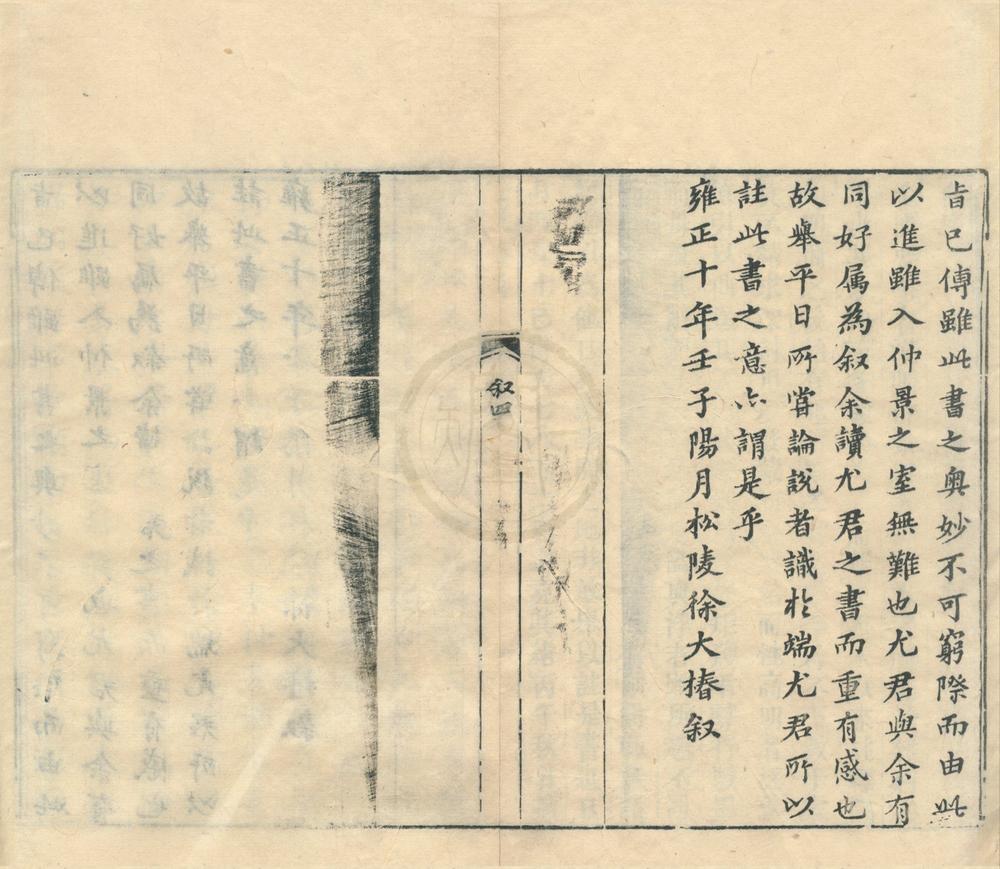 旨已傳雖此書之奥妙不可窮際而由此
以進雖入仲景之室無難也尤君與余有
同好属為叙余讀尤君之書而重有感也
故舉平日所嘗論說者識於端尤君所以
註此書之意亦謂是乎
雍正十年壬子陽月松陵徐大椿叙
叙四